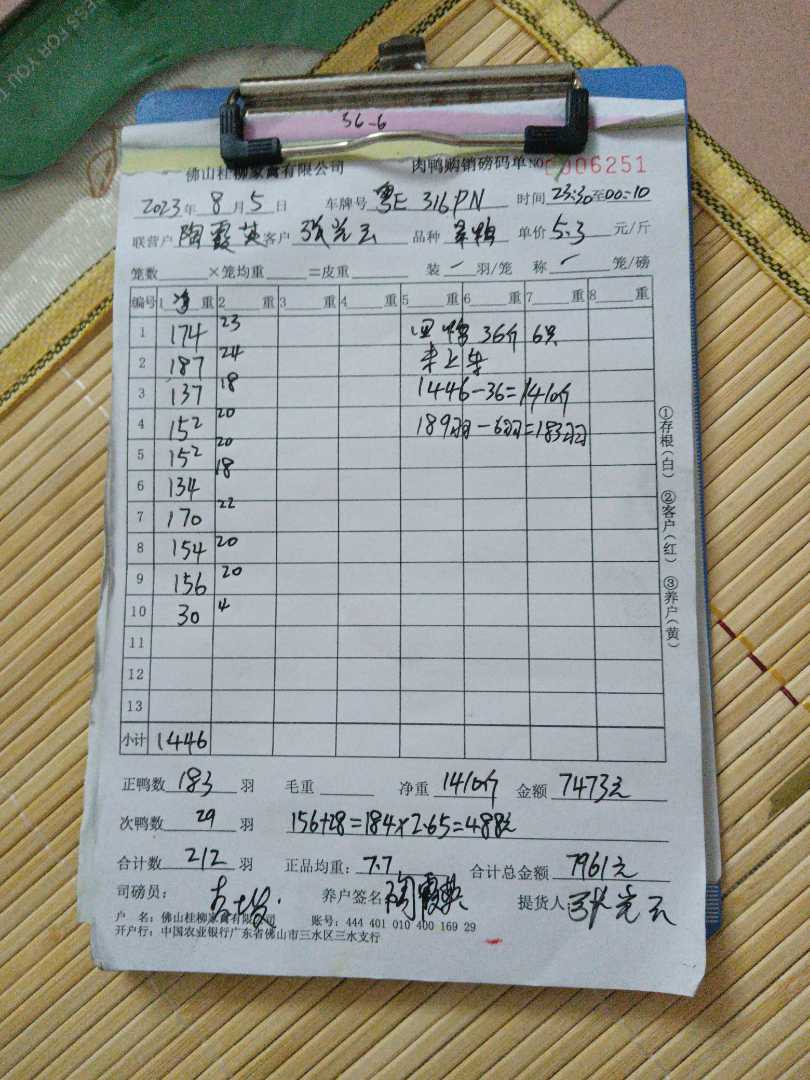 ESS FOR YOU
36-6
佛山桂柳家禽有限公司 肉鸭购销磅码单 NO 0006251
2023年8月5日 车牌号 粤E 316PN 时间 23:30至00:10
联营户 陶霞英 客户 张光云 品种 单价 5.3 元/斤
笼数 ×笼均重 =皮重 装 一 羽/笼 称 一 笼/磅
编号 1 净 重 2 重 3 重 4 重 5 重 6 重 7 重 8 重
1 174 23 回鸭 36斤 6只
2 187 24 未上车
3 137 18 1446-36=1410斤
4 152 20 189羽-6羽=183羽
5 152 20
6 134 18
7 170 22
8 154 20
9 156 20
10 30 4
11
12
13
小计 1446
①存根(白) ②客户(红) ③养户(黄)
正鸭数 183 羽 毛重 净重 1410斤 金额 7473元
次鸭数 29 羽 156+28=184×2.65=488元
合计数 212 羽 正品均重: 7.7 合计总金额 7961元
司磅员: 养户签名 陶霞英 提货人 张光云
户 名: 佛山桂柳家禽有限公司 账号: 444 401 010 400 169 29
开户行: 中国农业银行广东省佛山市三水区三水支行